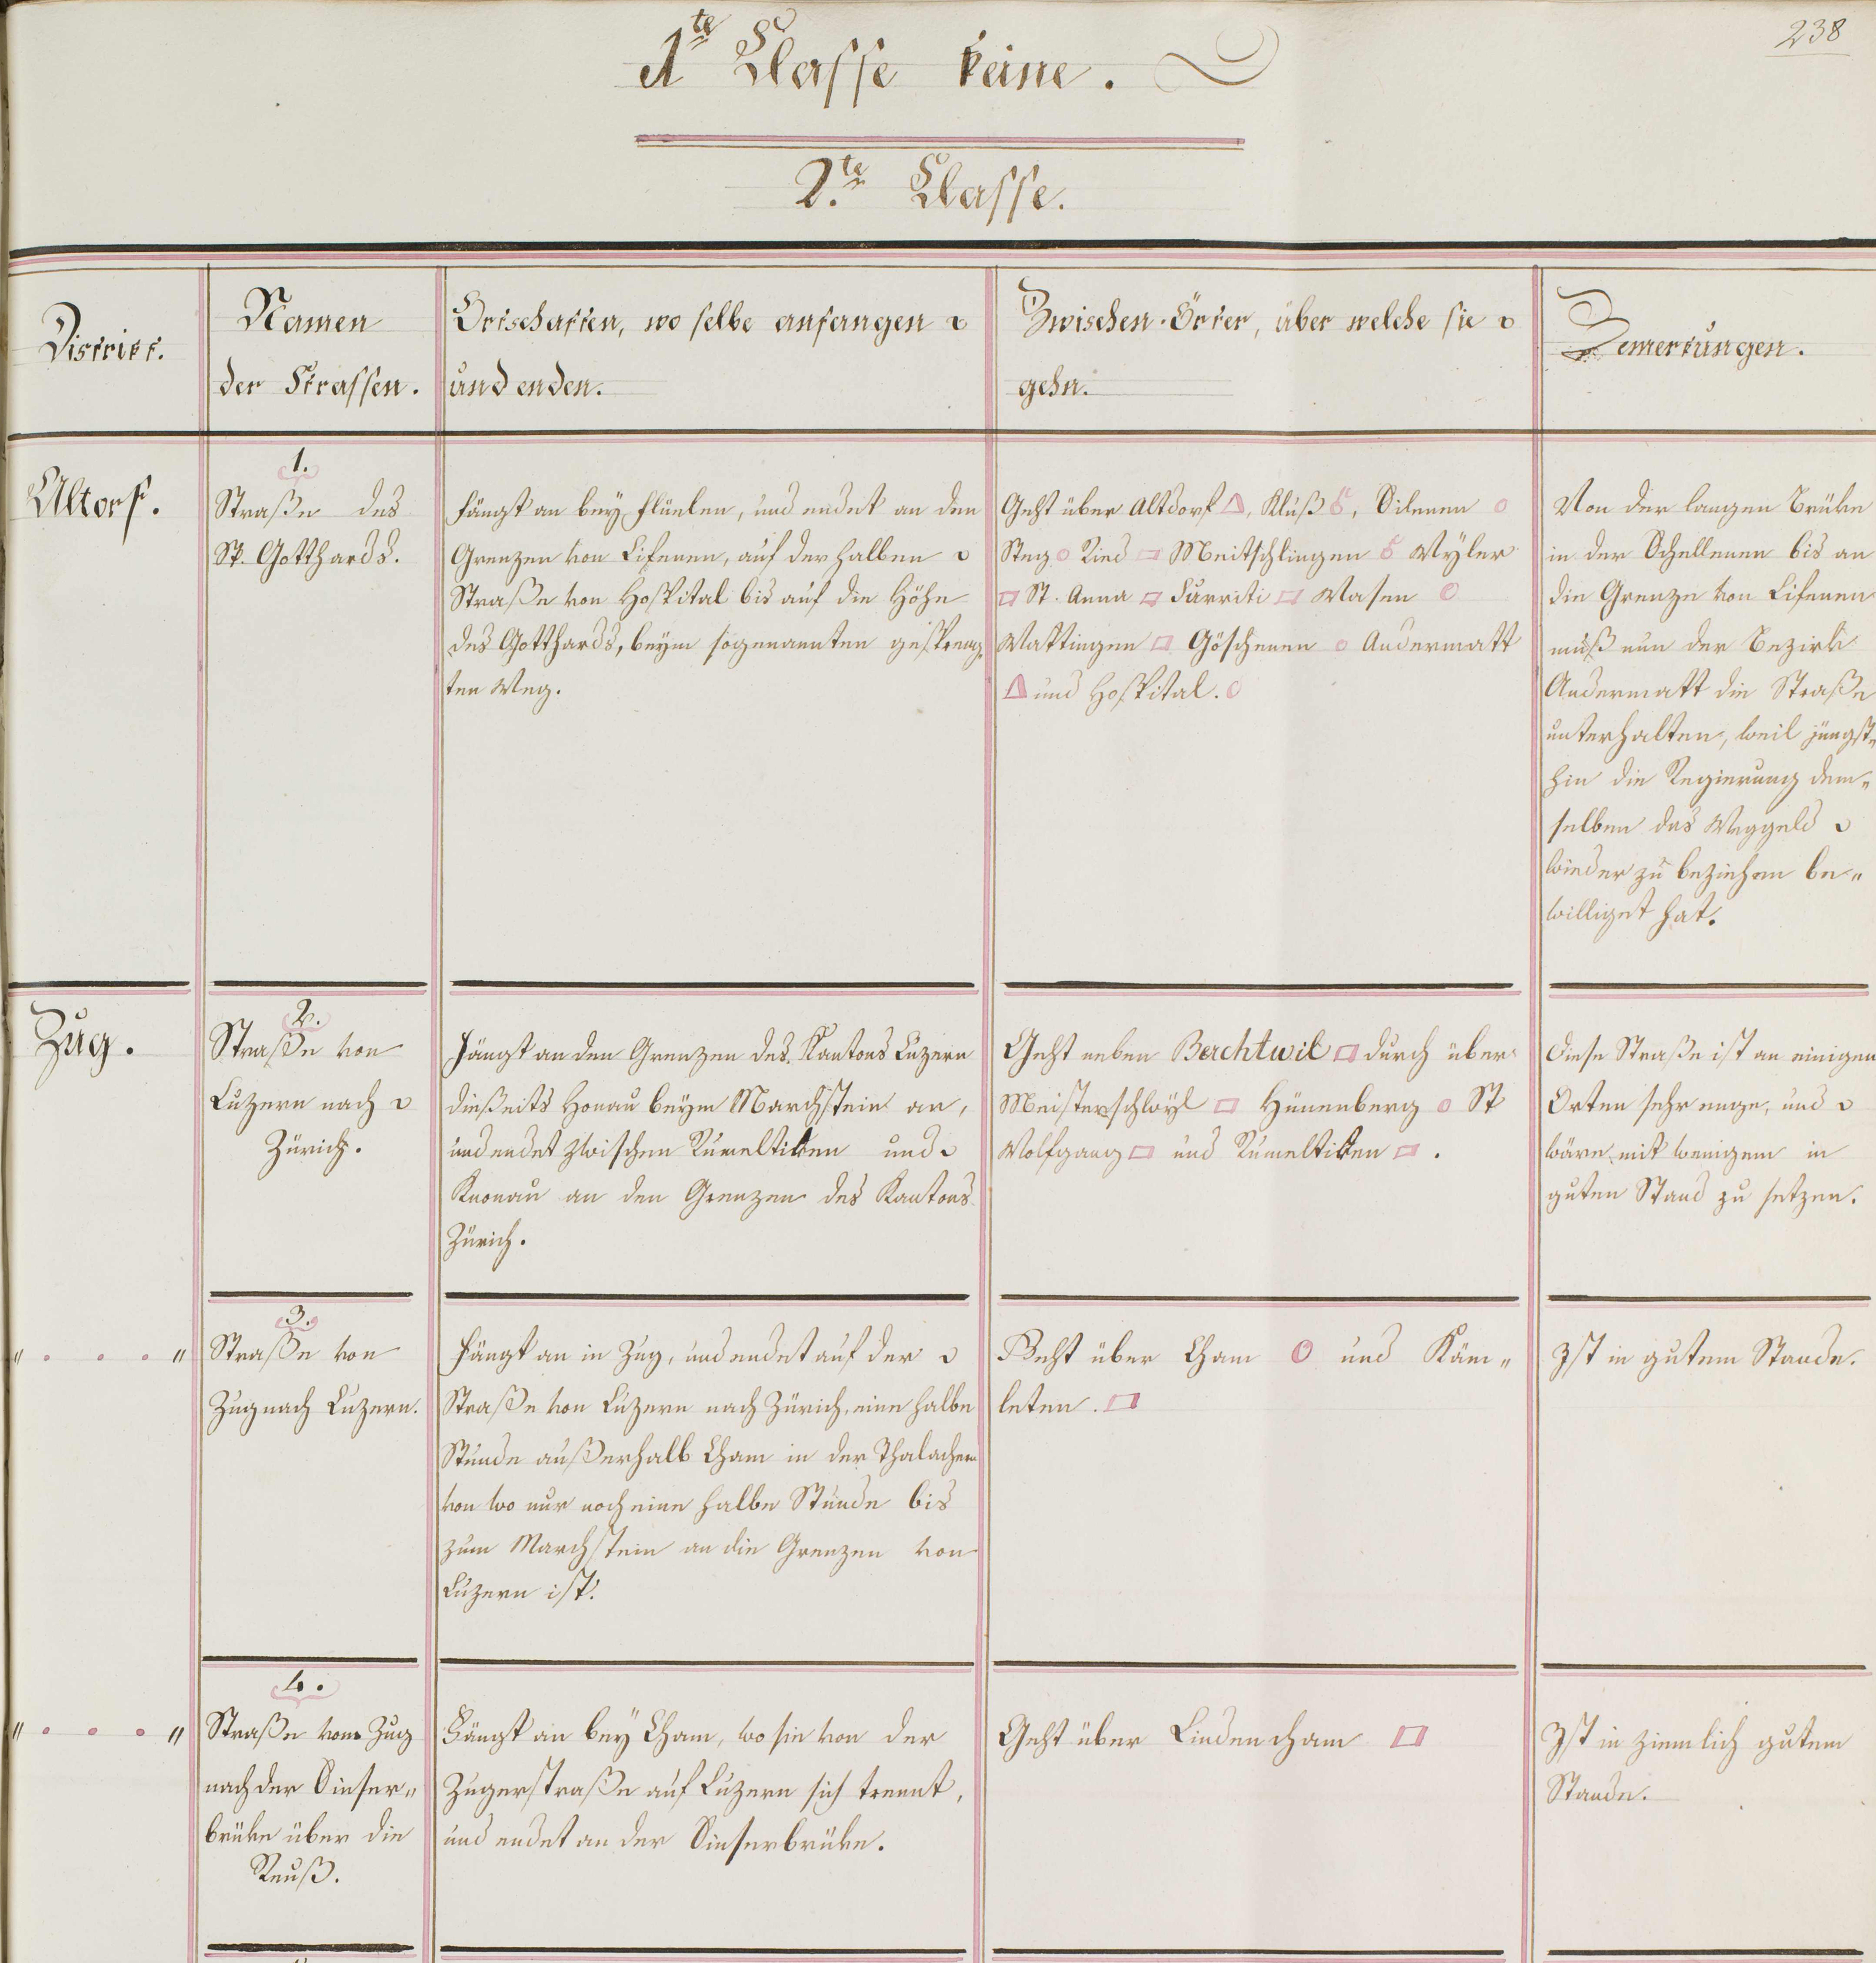 238
1te Classe keine.
2.te Classe.
District.
Namen
der Strassen.
Ortschaften, wo selbe anfangen
und enden.
Zwischen-Örter, über welche sie
gehn.
Bemerkungen.
Altorf.
1.
Straße des
St. Gotthards.
Fängt an bey Flüelen, und endet an den
Grenzen von Lifenen, auf der halben
Straße von Hospital bis auf die Höhe
des Gotthards, beym sogenannten gespreng-
ten Weg.
Geht über Altdorf, Kluß, Silenen
Steg Ried Meitschlingen Wyler
St. Anna Wasen
Wattingen Göschenen Andermatt
und Hospital.
Von der langen Brüke
in der Schellenen bis an
die Grenze von Lifenen
muß nun der Bezirk
Andermatt die Straße
unterhalten, weil jüngst„
hin die Regierung dem„
selben das Weggeld
wieder zu beziehen be„
williget hat.
Zug.
2.
Straße von
Luzern nach
Zürich.
Fängt an den Grenzen des Kantons Luzern
dießeits Honau beym Marchstein an,
und endet zwischen Rumeltiken und
Knonau an den Grenzen des Kantons
Zürich.
Geht neben Berchtwil durch über
Meisterschwyl Hünenberg St
Wolfgang und Rumeltiken.
Diese Straße ist an einigen
Orten sehr enge, und
wäre mit wenigem in
guten Stand zu setzen.
„ . . . „
3.
Straße von
Zug nach Luzern.
Fängt an in Zug, und endet auf der
Straße von Luzern nach Zürich, eine halbe
Stunde außerhalb Cham in der Thalachern
von wo nur noch eine halbe Stunde bis
zum Marchstein an die Grenzen von
Luzern ist.
Geht über Cham und Käm„
leten.
Ist in gutem Stande.
„ . . . „
4.
Straße von Zug
nach der Sinser„
brüke über die
Reuß.
Fängt an bey Cham, wo sie von der
Zugerstraße auf Luzern sich trennt,
und endet an der Sinserbrüke.
Geht über Lindencham
Ist in ziemlich gutem
Stande.